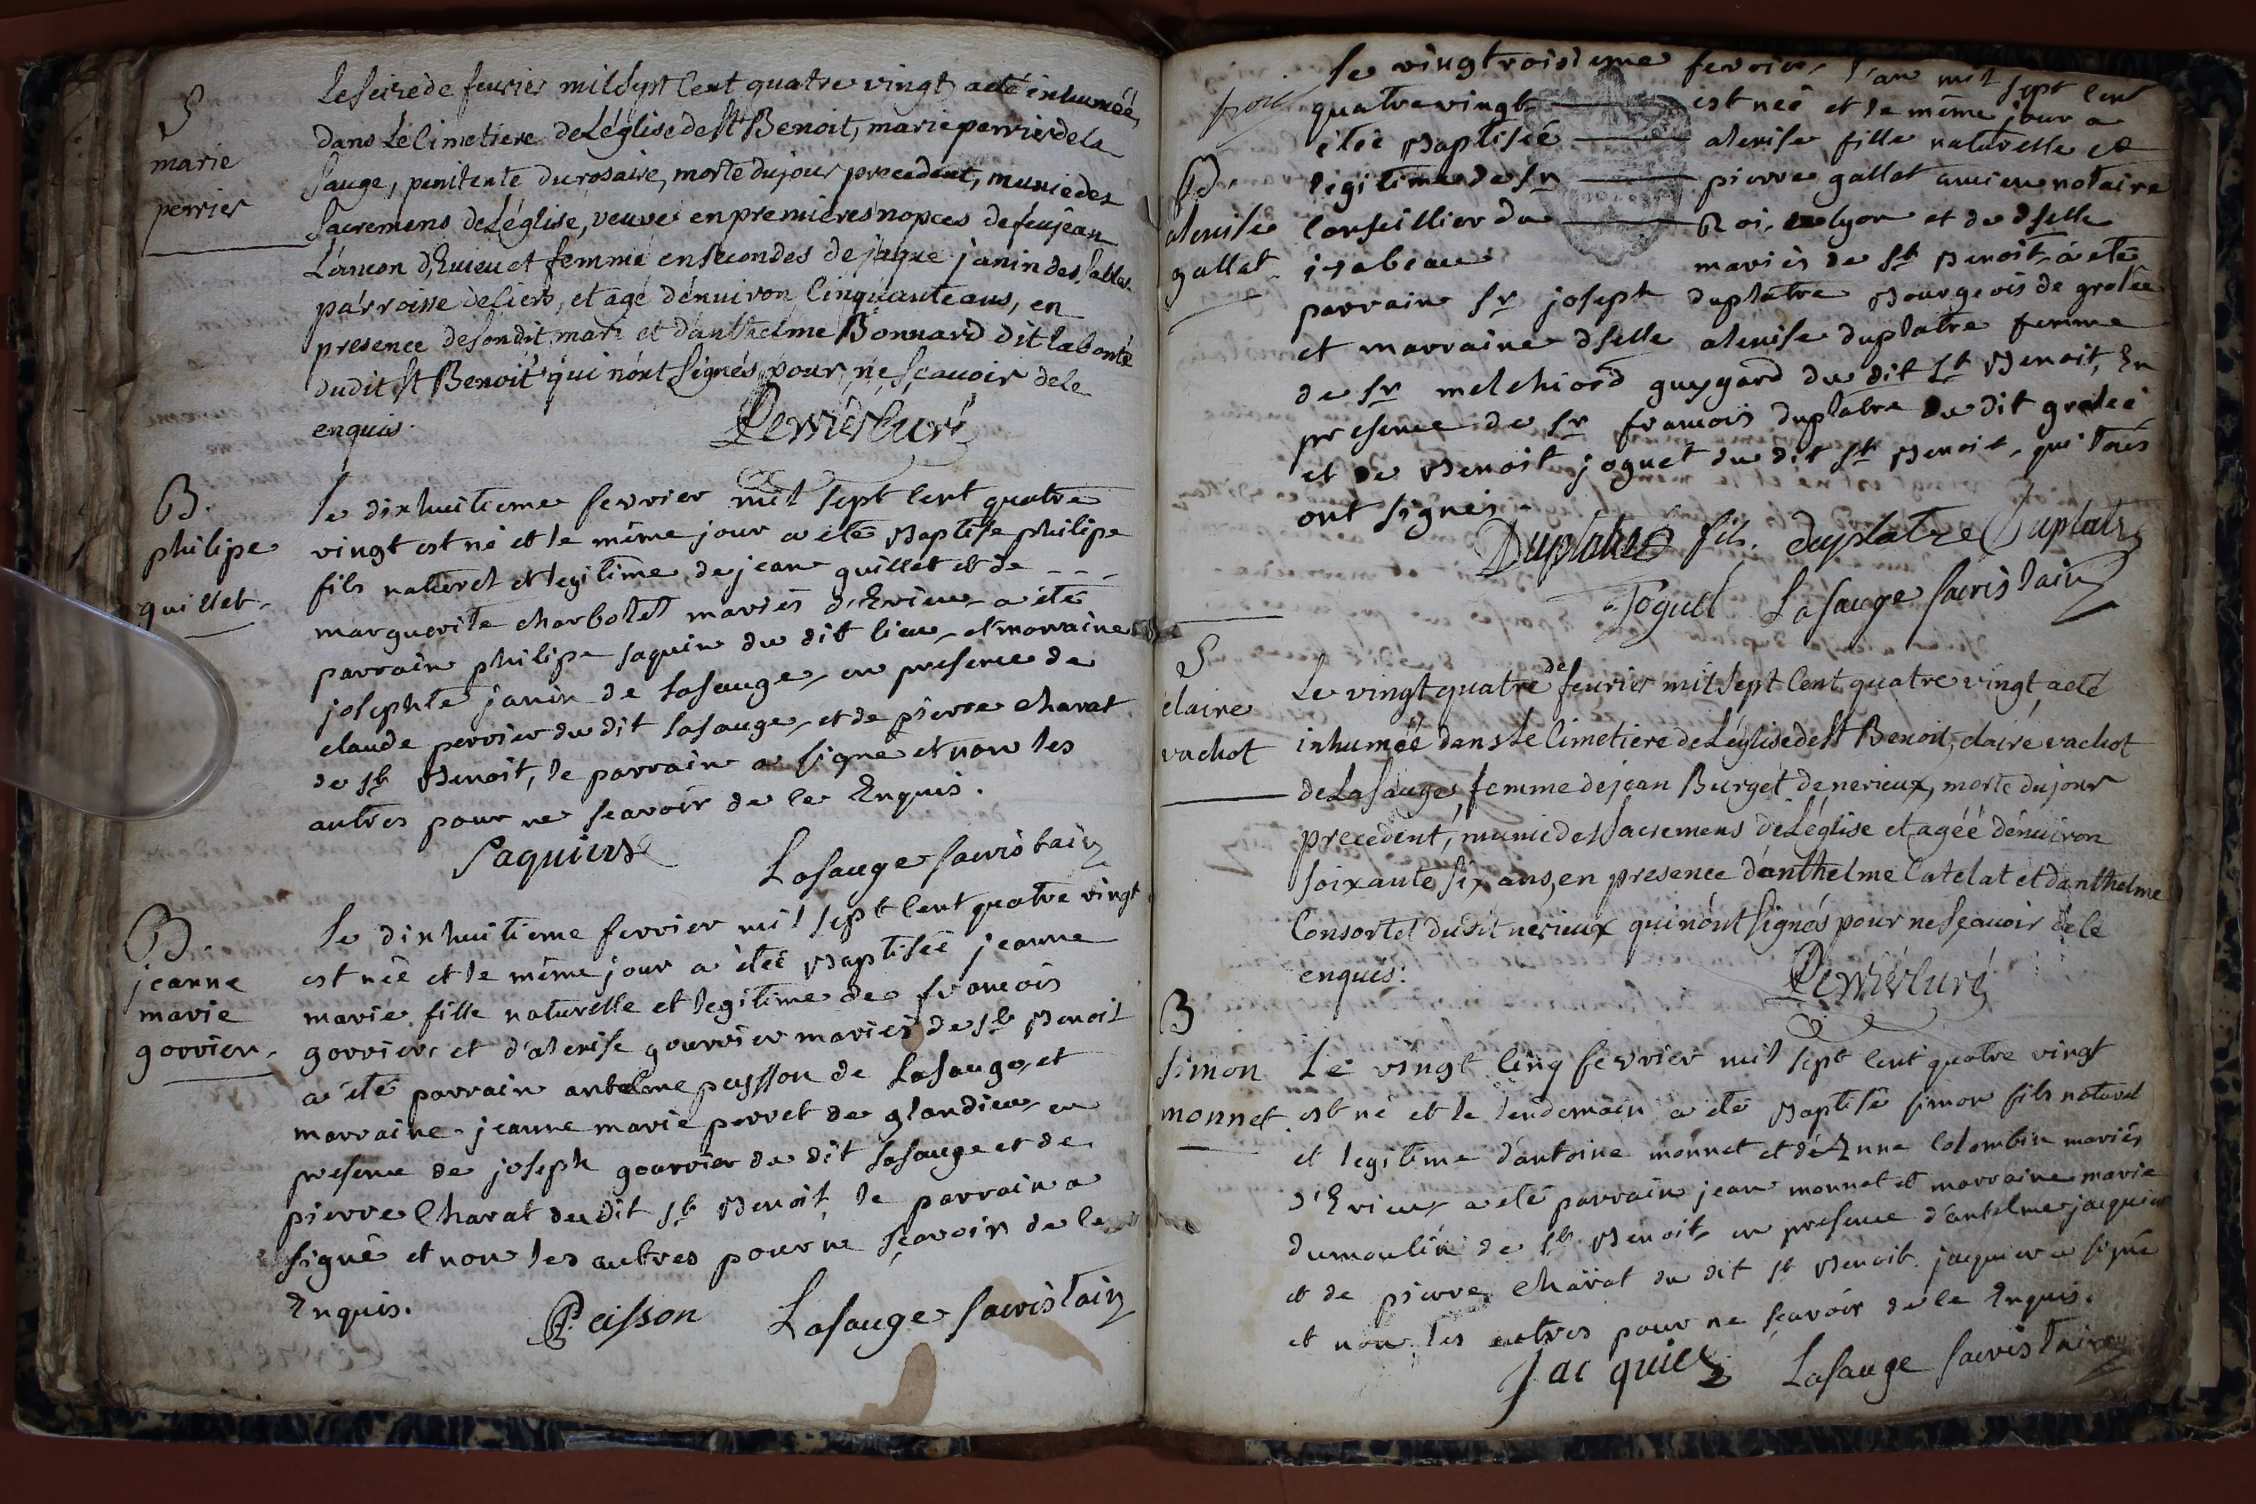 S
marie
perrier
Le seize de feurier mil sept Cent quatre vingt a eté inhumée
dans Le Cimetiere de L'église de st Benoit, marie perrier de la
sauge, penitente du rosaire, morte du jour precedent, munie des
sacremens de L'église, veuve en premieres nopces de feu jean
d'Evieu et femme en secondes de jaque janin des
parroisse de Ciers, et agé d'enuiron Cinquante ans, en
presence de son dit mari et d'anthelme Bonnard dit la bonté
du dit st Benoit qui n'ont signés pour ne sçauoir de le
enquis.
Perrier Curé
B.
philipe
quillet
le dixhuitieme fevrier mil sept Cent quatre
vingt est né et le même jour a eté Baptisé philipe
fils naturel et legitime de jean quillet et de
marguerite charbotel mariés d'Evieu a eté
parrain philipe saquin du dit lieu et marraine
josephte janin de Lasauge, en presence de
claude perrier du dit Lasauge, et de pierre charat
de st Benoit, le parrain a signe et non les
autres pour ne scavoir de le Enquis.
Saquin Lasauge sacristain
B.
jeanne
marie
gorrier
le dixhuitieme fevrier mil sept Cent quatre vingt
est née et le même jour a eteé Baptiseé jeanne
marie fille naturelle et legitime de francois
gorrier et d'alexise gourrier mariés de st Benoit
a eté parrain antelme puysson de Lasauge, et
marraine jeanne marie perret de glandieu en
presence de joseph gourrier du dit Lasauge et de
pierre Charat du dit st Benoit le parrain a
signé et non les autres pour ne sçavoir de le
Enquis.
Peisson Lasauge sacristain
B.
alexise
gallat
le vingtroisieme fevrier l'an mil sept Cent
quatre vingt est neé et le même jour a
eteé Baptiseé alexise fille naturelle et
legitime de sr pierre gallat ancien notaire
Conseillier du Roi, a lyon et de dselle
isabeau mariés de st Benoit, a eté
parrain sr joseph duplatre Bourgeois de groleé
et marraine dselle alexise duplatre femme
de sr melchiord guygard du dit st Benoit, En
presence de sr francois duplatre du dit groleé
et de Benoit joguet du dit st Benoit, qui tous
ont signés.
Duplatre fils. duplatre Duplatre
Joguet Lasauge sacristain
S
claire
vachot
Le vingt quatre de feurier mil sept Cent quatre vingt, a eté
inhumée dans Le Cimetiere de L'église de st Benoit, claire vachot
de La sauge, femme de jean Burget de nerieux, morte du jour
precedent, munie des sacremens de L'église et agéé d'enuiron
soixante six ans, en presence d'anthelme Catelat et d'anthelme
Consortet du dit nerieux qui n'ont signés pour ne sçauoir de le
enquis.
Perrier Curé
B
simon
monnet
Le vingt Cinq fevrier mil sept Cent quatre vingt
est né et le lendemain a eté Baptisé simon fils naturel
et legitime d'antoine monnet et d'Enne Colombin mariés
d'Evieu a eté parrain jean monnet et marraine marie
dumoulin de st Benoit en presence d'antelme jacquier
et de pierre charat du dit st Benoit jacquier a signé
et non les autres pour ne sçavoir de le Enquis.
Jacquier Lasauge sacristain